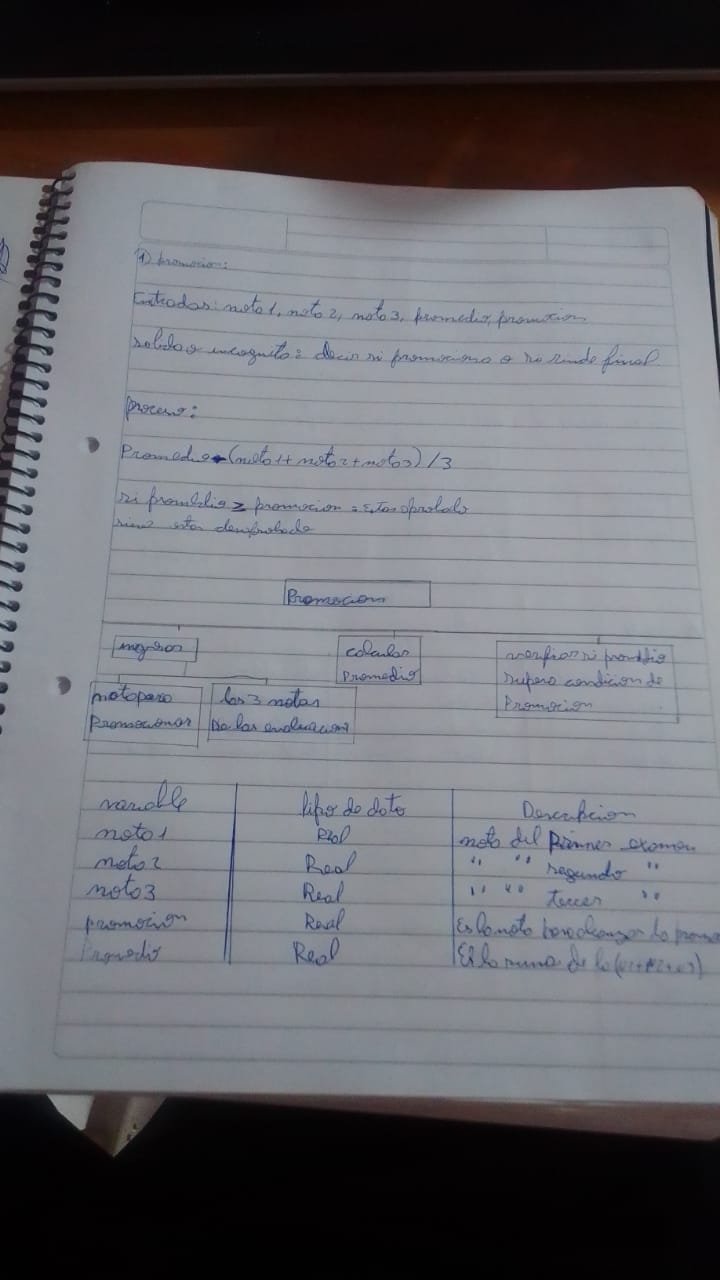 1) promocion:
Entradas: nota1, nota2, nota3, promedio, promocion
salida o incognita: decir si promociona o si rinde final
proceso:
Promedio ← (nota1+ nota2+nota3) /3
si promedio ≥ promocion = Estas aprobado
sino estas desaprobado
Promocion
ingresar
calcular
Promedio
verficar si promedio
supera condicion de
Promocion
nota para
Promocionar
las 3 notas
De las evaluaciones
variable tipo de dato Descripcion
nota1 Real nota del primer examen
nota2 Real " " segundo "
nota3 Real " " tercer "
promocion Real Es la nota para alcanzar la
Promedio Real Es la suma de la